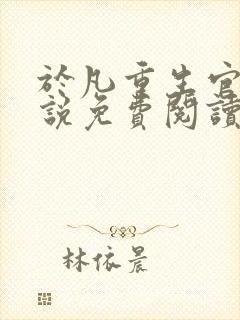 於凡重生官
說免費閱讀
林依晨